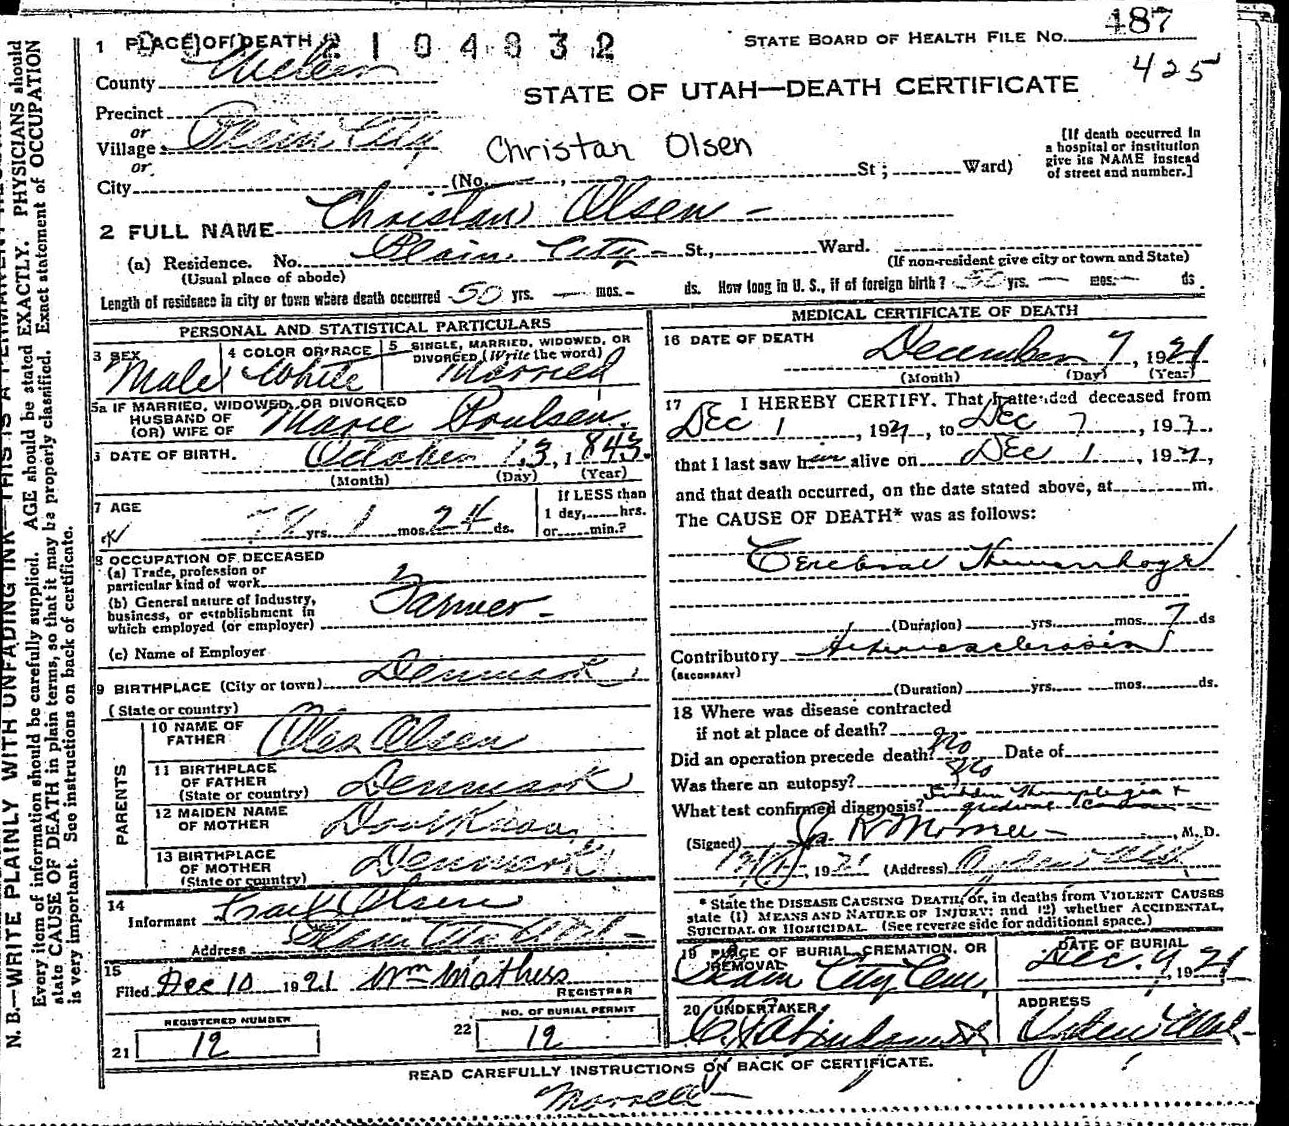 487
1 PLACE OF DEATH 2104832 STATE BOARD OF HEALTH FILE No.
425
County Weber
STATE OF UTAH—DEATH CERTIFICATE
Precinct
or
Village Plain City
Christan Olsen
[If death occurred in
a hospital or institution
give its NAME instead
of street and number.]
or
City (No. , St; Ward)
2 FULL NAME Christan Olsen -
(a) Residence. No. Plain City St., Ward.
(Usual place of abode) (If non-resident give city or town and State)
Length of residence in city or town where death occurred 50 yrs. — mos. - ds. How long in U. S., if of foreign birth? 50 yrs. — mos. — ds.
PERSONAL AND STATISTICAL PARTICULARS
3 SEX Male
4 COLOR OR RACE White
5 SINGLE, MARRIED, WIDOWED, OR
DIVORCED (Write the word)
Married
5a IF MARRIED, WIDOWED, OR DIVORCED
HUSBAND OF
(OR) WIFE OF Marie Poulsen.
DATE OF BIRTH. October 13, 1843.
(Month) (Day) (Year)
7 AGE
78 yrs. 1 mos. 24 ds.
If LESS than
1 day, hrs.
or min.?
8 OCCUPATION OF DECEASED
(a) Trade, profession or
particular kind of work
Farmer -
(b) General nature of Industry,
business, or establishment in
which employed (or employer)
(c) Name of Employer
9 BIRTHPLACE (City or town) Denmark
(State or country)
PARENTS
10 NAME OF
FATHER Olen Olsen
11 BIRTHPLACE
OF FATHER
(State or country) Denmark
12 MAIDEN NAME
OF MOTHER Dont Know
13 BIRTHPLACE
OF MOTHER
(State or country) Denmark
14
Informant Olsen
Address Plain City Utah -
15
Filed Dec 10 1921 Wm Mathess
REGISTRAR
REGISTERED NUMBER
21 12
NO. OF BURIAL PERMIT
22 12
MEDICAL CERTIFICATE OF DEATH
16 DATE OF DEATH
December 7, 1921
(Month) (Day) (Year)
17 I HEREBY CERTIFY, That I attended deceased from
Dec 1, 192, to Dec 7, 192,
that I last saw him alive on Dec 1, 192,
and that death occurred, on the date stated above, at m.
The CAUSE OF DEATH* was as follows:
Cerebral Hemorrhage
(Duration) yrs. mos. 7 ds
Contributory Arteriosclerosis
(SECONDARY)
(Duration) yrs. mos. ds.
18 Where was disease contracted
if not at place of death?
Did an operation precede death? No Date of
Was there an autopsy? No
What test confirmed diagnosis? Sudden Hemiplegia +
gradual
(Signed) , M. D.
1921 (Address) Ogden Utah
* State the DISEASE CAUSING DEATH, or, in deaths from VIOLENT CAUSES
state (1) MEANS AND NATURE OF INJURY; and (2) whether ACCIDENTAL,
SUICIDAL OR HOMICIDAL. (See reverse side for additional space.)
19 PLACE OF BURIAL, CREMATION, OR
REMOVAL
Plain City Cem,
DATE OF BURIAL
Dec. 9, 1921
20 UNDERTAKER
ADDRESS
Ogden Utah -
READ CAREFULLY INSTRUCTIONS ON BACK OF CERTIFICATE.
Morrell
N. B.—WRITE PLAINLY WITH UNFADING INK—THIS IS A PERMANENT RECORD
Every item of information should be carefully supplied. AGE should be stated EXACTLY. PHYSICIANS should
state CAUSE OF DEATH in plain terms, so that it may be properly classified. Exact statement of OCCUPATION
is very important. See instructions on back of certificate.